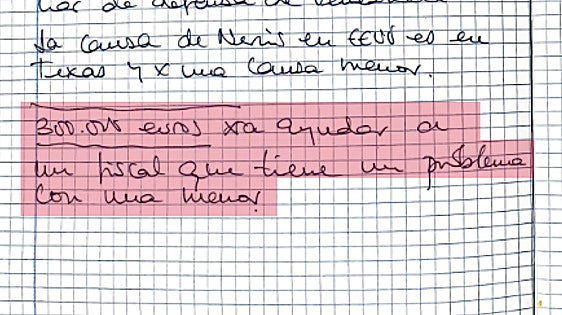 La causa de Nervis en EEUU es en
Texas y x una causa menor.
300.000 euros xa ayudar a
un fiscal que tiene un problema
con una menor.